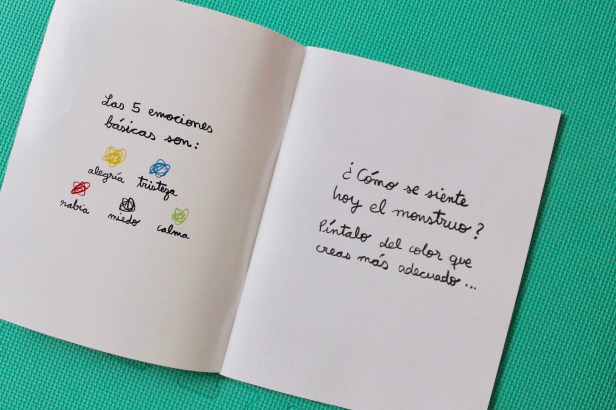 Las 5 emociones
básicas son:
alegría tristeza
rabia miedo calma
¿Cómo se siente
hoy el monstruo?
Píntalo del color que
creas más adecuado...